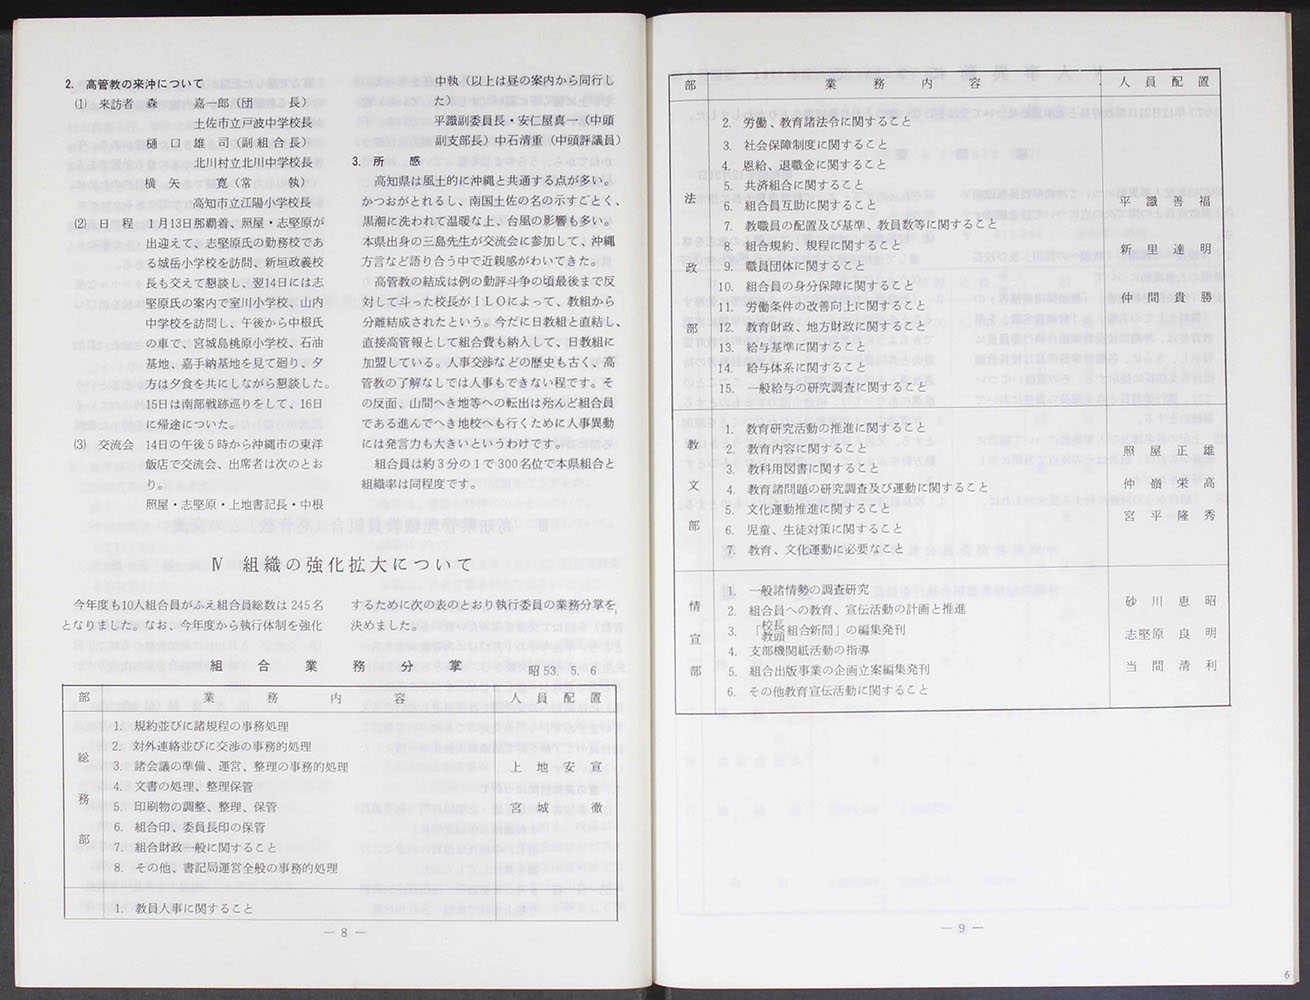 2. 高管教の来沖について
(1) 来訪者 森 嘉一郎（団 長）
土佐市立戸波中学校長
樋口雄司（副組合長）
北川村立北川中学校長
横矢 寛（常 執）
高知市立江陽小学校長
(2) 日程 1月13日那覇着、照屋・志堅原が
出迎えて、志堅原氏の勤務校であ
る城岳小学校を訪問、新垣政義校
長も交えて懇談し、翌14日には志
堅原氏の案内で室川小学校、山内
中学校を訪問し、午後から中根氏
の車で、宮城島桃原小学校、石油
基地、嘉手納基地を見て廻り、夕
方は夕食を共にしながら懇談した。
15日は南部戦跡巡りをして、16日
に帰途についた。
(3) 交流会 14日の午後5時から沖縄市の東洋
飯店で交流会、出席者は次のとお
り。
照屋・志堅原・上地書記長・中根
中執（以上は昼の案内から同行し
た）
平識副委員長・安仁屋真一（中頭
副支部長）中石清重（中頭評議員）
3. 所 感
高知県は風土的に沖縄と共通する点が多い。
かつおがとれるし、南国土佐の名の示すごとく、
黒潮に洗われて温暖な上、台風の影響も多い。
本県出身の三島先生が交流会に参加して、沖縄
方言など語り合う中で近親感がわいてきた。
高管教の結成は例の勤評斗争の頃最後まで反
対して斗った校長がILOによって、教組から
分離結成されたという。今だに日教組と直結し、
直接高管報として組合費も納入して、日教組に
加盟している。人事交渉などの歴史も古く、高
管教の了解なしでは人事もできない程です。そ
の反面、山間へき地等への転出は殆んど組合員
である進んでへき地校へも行くために人事異動
には発言力も大きいというわけです。
組合員は約3分の1で300名位で本県組合と
組織率は同程度です。
Ⅳ 組織の強化拡大について
今年度も10人組合員がふえ組合員総数は245名
となりました。なお、今年度から執行体制を強化
するために次の表のとおり執行委員の業務分掌を
決めました。
組合業務分掌
昭53. 5. 6
部 業務内容 人員配置
総務部
1. 規約並びに諸規程の事務処理
2. 対外連絡並びに交渉の事務的処理
3. 諸会議の準備、運営、整理の事務的処理
4. 文書の処理、整理保管
5. 印刷物の調整、整理、保管
6. 組合印、委員長印の保管
7. 組合財政一般に関すること
8. その他、書記局運営全般の事務的処理
上地安宣
宮城 徹
1. 教員人事に関すること
— 8 —
部 業務内容 人員配置
法政部
2. 労働、教育諸法令に関すること
3. 社会保障制度に関すること
4. 恩給、退職金に関すること
5. 共済組合に関すること
6. 組合員互助に関すること
7. 教職員の配置及び基準、教員数等に関すること
8. 組合規約、規程に関すること
9. 職員団体に関すること
10. 組合員の身分保障に関すること
11. 労働条件の改善向上に関すること
12. 教育財政、地方財政に関すること
13. 給与基準に関すること
14. 給与体系に関すること
15. 一般給与の研究調査に関すること
平識善福
新里達明
仲間貴勝
教文部
1. 教育研究活動の推進に関すること
2. 教育内容に関すること
3. 教科用図書に関すること
4. 教育諸問題の研究調査及び運動に関すること
5. 文化運動推進に関すること
6. 児童、生徒対策に関すること
7. 教育、文化運動に必要なこと
照屋正雄
仲嶺栄高
宮平隆秀
情宣部
1. 一般諸情勢の調査研究
2. 組合員への教育、宣伝活動の計画と推進
3. 「校長教頭組合新聞」の編集発刊
4. 支部機関紙活動の指導
5. 組合出版事業の企画立案編集発刊
6. その他教育宣伝活動に関すること
砂川恵昭
志堅原良明
当間清利
— 9 —
6